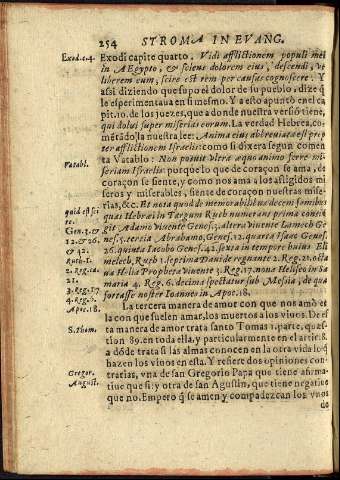 254 STROMA IN EVANG.
Exod.c.4. Exodi capite quarto, Vidi afflictionem populi mei
in AEgypto, & sciens dolorem eius, descendi, vt
liberem eum, scire est rem per causas cognoscere: Y
assi diziendo que supo el dolor de su pueblo, dize q̃
le esperimentaua en si mesmo. Y a esto apuntò en el ca
pit. 10. de los juezes, que a donde nuestra versiõ tiene,
qui doluit super miserias eorum. La verdad Hebrea, co
metãdo, la nuestra lee: Anima eius abbreuiata est prop
ter afflictionem Israelis: como si dixera segun comen
Vatabl. ta Vatablo: Non potuit vltra æquo animo ferre mi
seriam Israelis: porque lo que de coraçon se ama, de
coraçon se siente, y como nos ama a los afligidos mi
seros y miserables, siente de coraçon nuestras mise
rias, &c. Et nota quod de memorabilibus decem famibus
quid est sci
re.
quas Hebræi in Targum Rueb numerant prima contigit
Gen. 3. &
12. & 26.
& 42.
Adamo viuente Genes. 3. altera viuente Lamech Ge
nes. 5. tercia Abrahamo, Genes. 12. quarta Isaac Genes.
26. quinta Iacobo Genes. 42. sexta in tempore huius Eli
Ruth. 1.
2. Reg. 21.
21.
melech, Rueb 1. septima Dauide regnante 2. Reg. 21. octa
ua Helia Propheta viuente 3. Reg. 17. nona Heliseo in Sa
3. Reg. 17
4. Reg. 6.
Apoc. 18.
maria 4. Reg. 6. decima spectatur sub Messia, de qua
fortasse noster Ioannes in Apoc. 18.
La tercera manera de amor con que nos amò es
la con que suelen amar, los muertos a los viuos. De es
S. Thom. ta manera de amor trata santo Tomas 1. parte, quæs
tion 89. en toda ella, y particularmente en el arti: 8.
a dõde trata si las almas conocen en la otra vida lo q̃
hazen los viuos en esta. Y refiere dos opiniones con
Gregor.
August.
trarias, vna de san Gregorio Papa que tiene afirma
tiue que si: y otra de san Agustin, que tiene negatiue
que no. Empero q̃ se amen y compadezcan los viuos
de